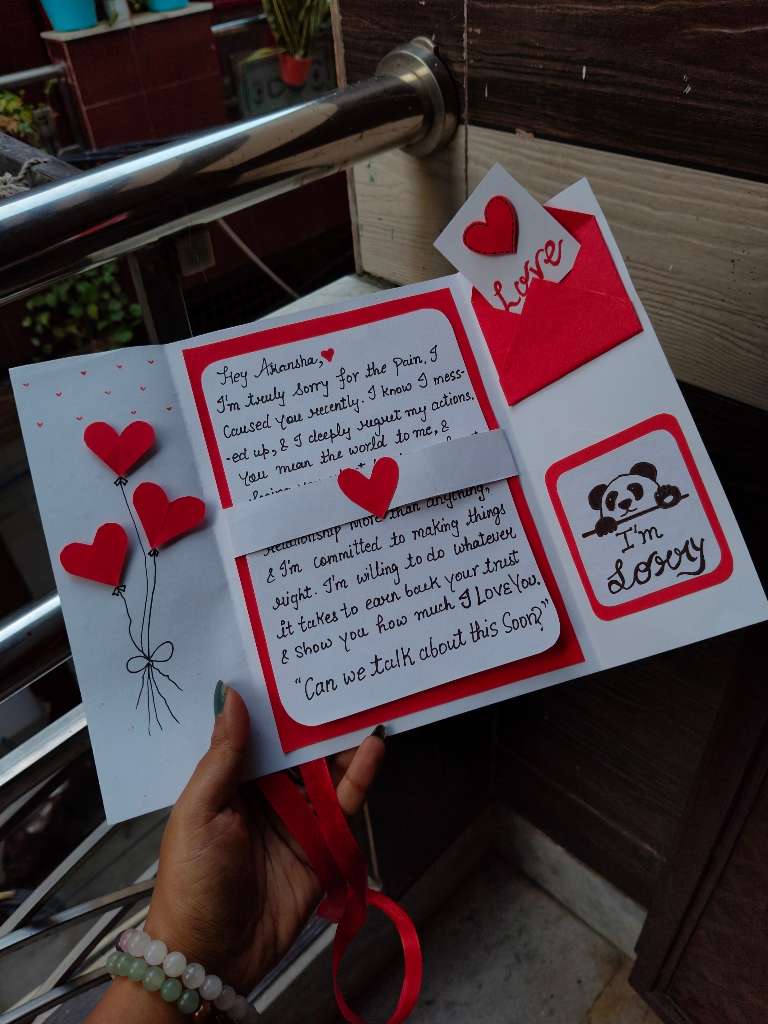 Hey Akansha,
I'm truly sorry for the Pain, I
Caused you recently. I know I mess-
-ed up, & I deeply regret my actions.
You mean the world to me, &
Relationship More than anything,
& I'm committed to making things
right. I'm willing to do whatever
it takes to earn back your trust
& show you how much I LOVE YOU.
"Can we talk about this Soon?"
Love
I'm
Sorry